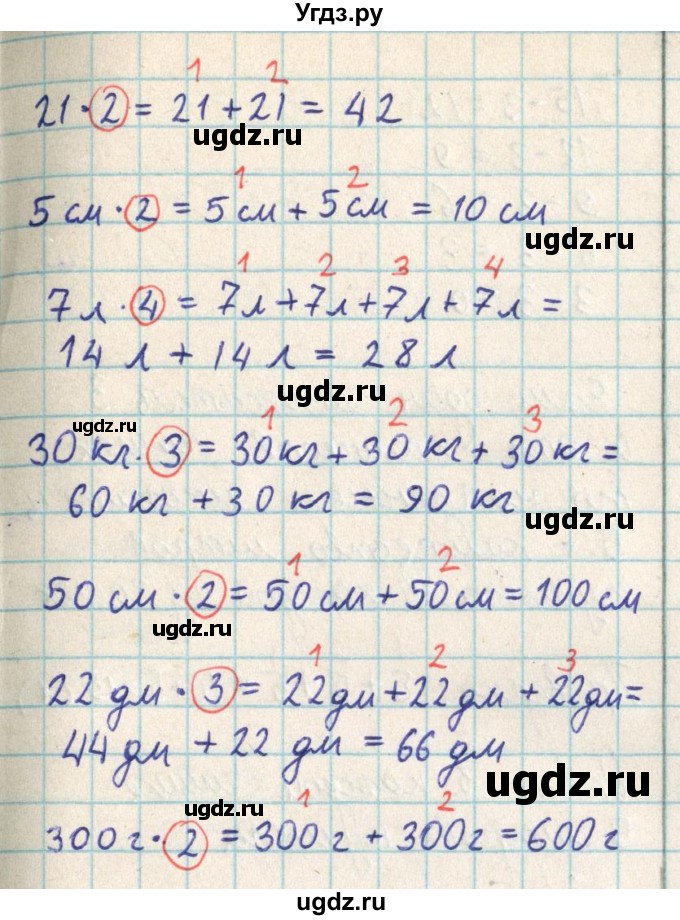 Угдз.ру
1 2
21 · 2 = 21 + 21 = 42
угдз.ру
1 2
5 см · 2 = 5 см + 5 см = 10 см
угдз.ру
1 2 3 4
7 л · 4 = 7 л + 7 л + 7 л + 7 л =
14 л + 14 л = 28 л
угдз.ру
угдз.ру
1 2 3
30 кг · 3 = 30 кг + 30 кг + 30 кг =
60 кг + 30 кг = 90 кг
угдз.ру
1 2
50 см · 2 = 50 см + 50 см = 100 см
угдз.ру
1 2 3
22 дм · 3 = 22 дм + 22 дм + 22 дм =
44 дм + 22 дм = 66 дм
угдз.ру
угдз.ру
1 2
300 г · 2 = 300 г + 300 г = 600 г
угдз.ру